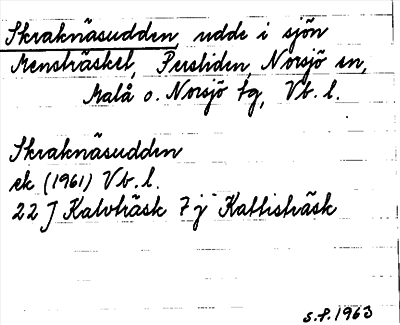 Skraknäsudden, udde i sjön
Mensträsket, Perstiden, Norsjö sn,
Malå o. Norsjö tg, Vb. l.
Skraknäsudden
ek (1961) Vb. l.
22 J Kalvträsk 7 j Kattisträsk
s.f. 1963